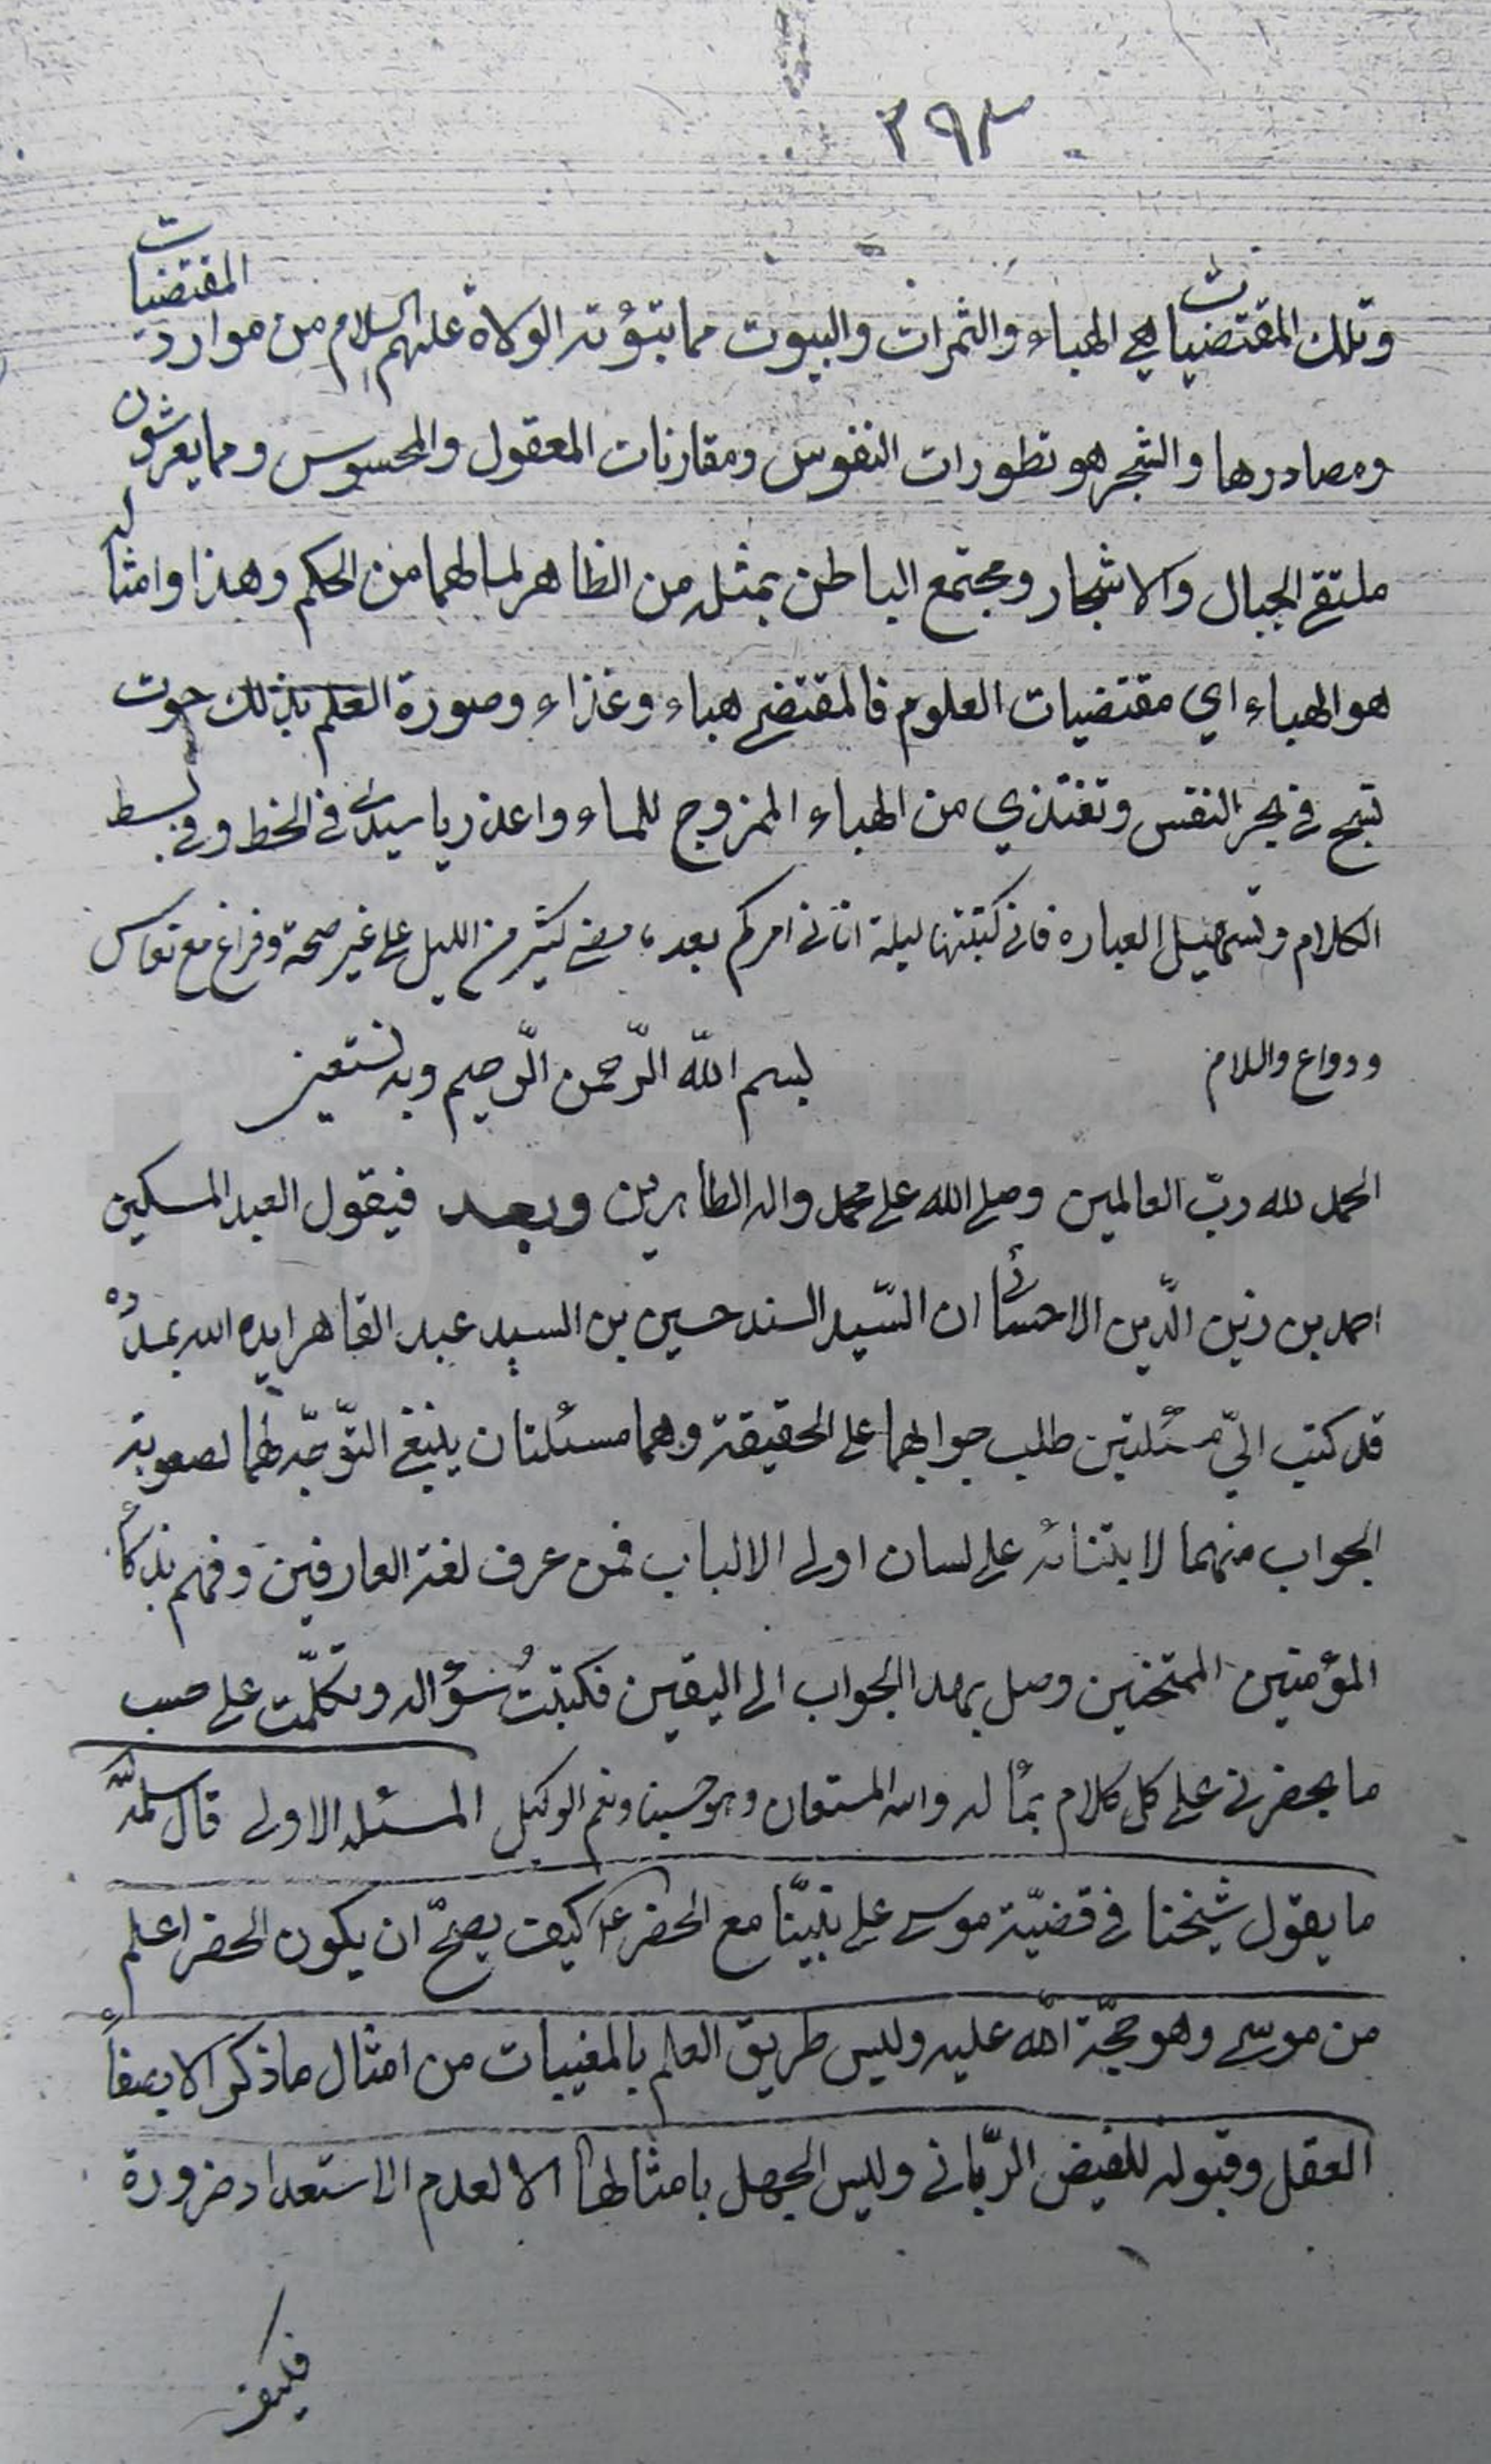 ٢٩٣
وتلك المقتضيات هي الهباء والثمرات والبيوت مما يتبوّئه الولاة عليهم السلام من موارد المقتضيات
ومصادرها والشجر هو تطورات النفوس ومقارنات المعقول والمحسوس ومما يعرشون
ملتقى الجبال والاشجار ومجتمع الباطن بمثله من الظاهر لما لهما من الحكم وهذا وامثاله
هو الهباء اي مقتضيات العلوم فالمقتضي هباء وغذاء وصورة العلم بذلك حوت
تسبح في بحر النفس وتغتذي من الهباء الممزوج للماء واعذر يا سيدي في الخط وفي بسط
الكلام وتسهيل العبارة فاني كتبتها ليلة اتاني امركم بعد ما مضى كثير من الليل على غير صحة وفراغ مع نعاس
ودواع والسلام
بسم اللّه الرّحمن الرّحيم وبه نستعين
الحمد لله ربّ العالمين وصلى الله على محمد واله الطاهرين وبعد فيقول العبد المسكين
احمد بن زين الدّين الاحسائي ان السّيد السند حسين بن السيد عبد القاهر ايده الله بمدده
قد كتب اليّ مسئلتين طلب جوابهما على الحقيقة وهما مسئلتان ينبغي التّوجّه لهما لصعوبة
الجواب منهما لابتنائه على لسان اولي الالباب فمن عرف لغة العارفين وفهم بذكاء
المؤمنين الممتحنين وصل بهذا الجواب الى اليقين فكتبتُ سؤاله وتكلّمت على حسب
ما يحضرني على كل كلام بما له والله المستعان وهو حسبنا ونعم الوكيل المسئلة الاولى قال سلمه اللّه
ما يقول شيخنا في قضيّة موسى على نبيّنا مع الخضر ع كيف يصحّ ان يكون الخضر اعلم
من موسى وهو حجّة اللّه عليه وليس طريق العلم بالمغيبات من امثال ما ذكر الا بصفاء
العقل وقبوله للفيض الرّباني وليس الجهل بامثالها الا لعدم الاستعداد ضرورة
فكيف